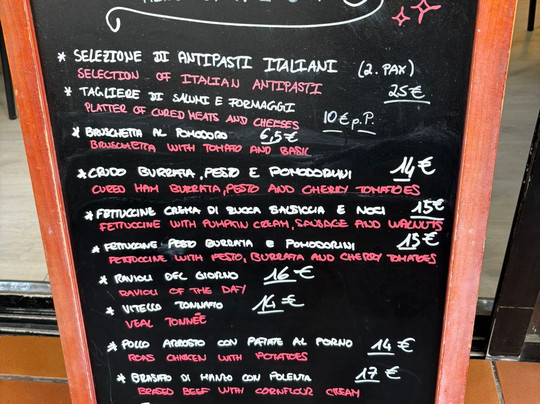 * SELEZIONE DI ANTIPASTI ITALIANI (2. PAX)
SELECTION OF ITALIAN ANTIPASTI 25€
* TAGLIERE DI SALUMI E FORMAGGI
PLATTER OF CURED MEATS AND CHEESES 10€ p.P.
* BRUSCHETTA AL POMODORO 6,5€
BRUSCHETTA WITH TOMATO AND BASIL
* CRUDO BURRATA, PESTO E POMODORINI 14€
CURED HAM BURRATA, PESTO AND CHERRY TOMATOES
* FETTUCCINE CREMA DI ZUCCA SALSICCIA E NOCI 15€
FETTUCCINE WITH PUMPKIN CREAM, SAUSAGE AND WALNUTS
* FETTUCCINE PESTO BURRATA E POMODORINI 15€
FETTUCCINE WITH PESTO, BURRATA AND CHERRY TOMATOES
* RAVIOLI DEL GIORNO 16€
RAVIOLI OF THE DAY
* VITELLO TONNATO 14€
VEAL TONNÉE
* POLLO ARROSTO CON PATATE AL FORNO 14€
ROAS CHICKEN WITH POTATOES
* BRASATO DI MANZO CON POLENTA 17€
BRASED BEEF WITH CORNFLOUR CREAM